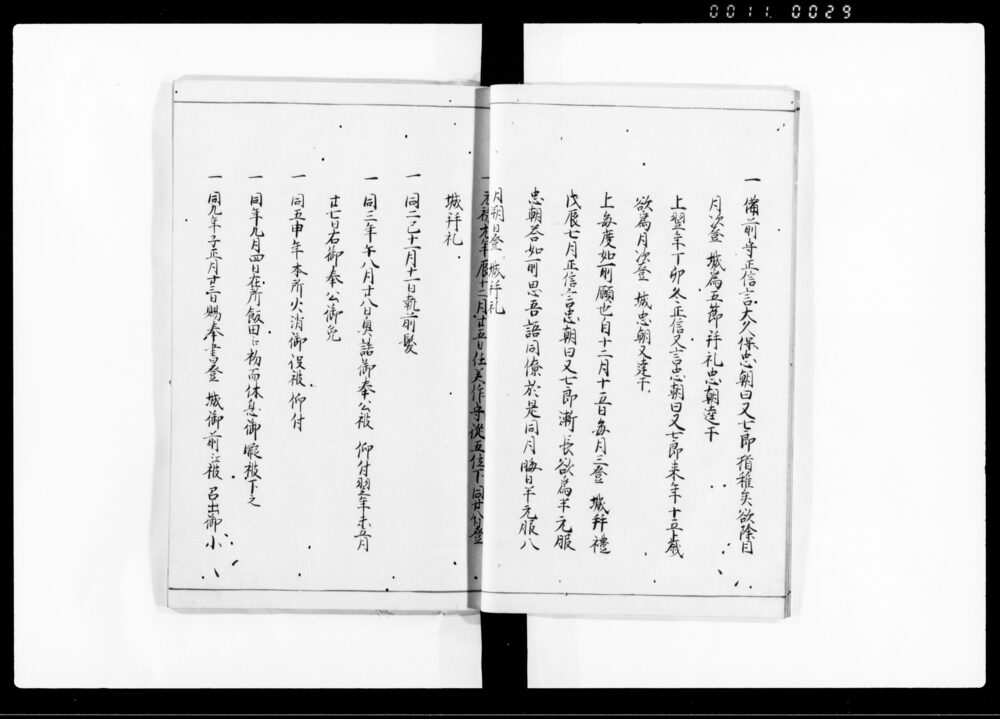 0011. 0029
一 備前守正信言大久保忠朝曰又七郎猶稚矣欲除日
月次登 城為五節拝礼忠朝達干
上翌年丁卯冬正信又言忠朝曰又七郎来年十五歳
欲為月次登 城忠朝又達干
上毎度如前願也自十二月十五日毎月三登 城拝禮
戊辰七月正信言忠朝曰又七郎漸長欲為半元服
忠朝答如前思吾語同僚於是同月晦日半元服八
月朔日登 城拝礼
一 元禄元年辰十二月廿五日任美作守従五位下同廿八日登
城拝礼
一 同二巳十一月十一日執前髪
一 同三年午八月廿八日奥詰御奉公被 仰付翌年未五月
廿七日右御奉公御免
一 同五申年本所火消御役被 仰付
一 同年九月四日在所飯田江初而休息御暇被下之
一 同九年子正月廿三日賜奉書登 城御前江被 召出御小